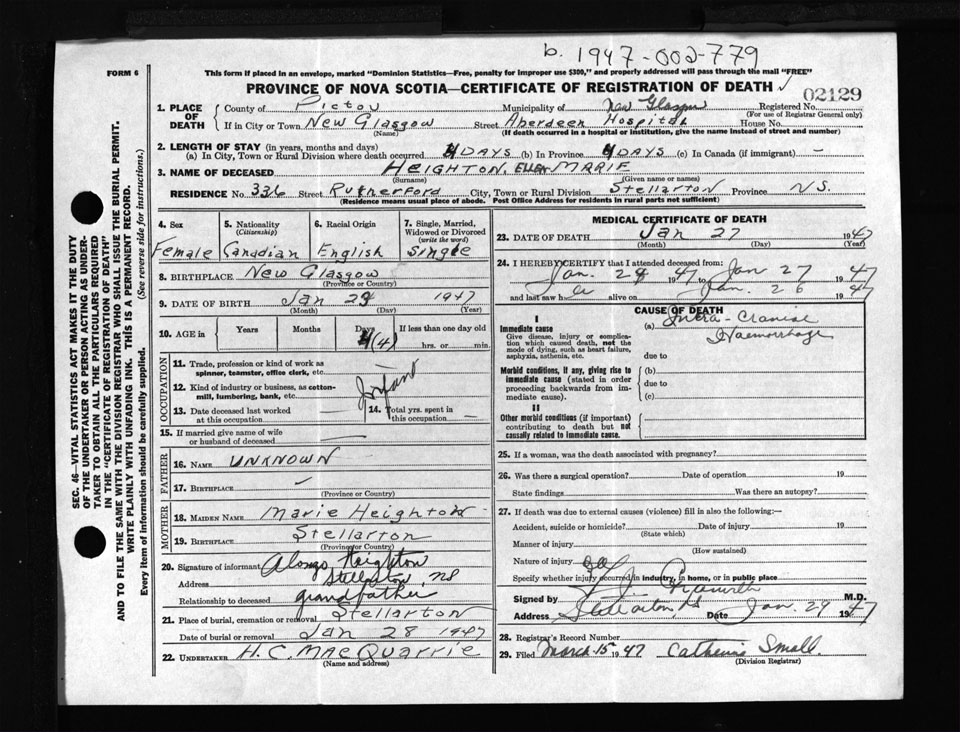 b. 1947-002-779
FORM 6
This form if placed in an envelope, marked "Dominion Statistics—Free, penalty for improper use $300," and properly addressed will pass through the mail "FREE"
PROVINCE OF NOVA SCOTIA—CERTIFICATE OF REGISTRATION OF DEATH
02129
1. PLACE OF DEATH
County of Pictou Municipality of New Glasgow Registered No.
(For use of Registrar General only)
If in City or Town New Glasgow Street Aberdeen Hospital House No.
(Name) (If death occurred in a hospital or institution, give the name instead of street and number)
2. LENGTH OF STAY (in years, months and days)
(a) In City, Town or Rural Division where death occurred 4 DAYS (b) In Province 4 DAYS (c) In Canada (if immigrant) —
3. NAME OF DECEASED HEIGHTON, ELLEN MARIE
(Surname) (Given name or names)
RESIDENCE No. 336 Street Rutherford City, Town or Rural Division Stellarton Province N.S.
(Residence means usual place of abode. Post Office Address for residents in rural parts not sufficient)
4. Sex
Female
5. Nationality (Citizenship)
Canadian
6. Racial Origin
English
7. Single, Married, Widowed or Divorced (write the word)
Single
8. BIRTHPLACE New Glasgow
(Province or Country)
9. DATE OF BIRTH Jan 1947
(Month) (Day) (Year)
10. AGE in Years Months Days If less than one day old
4 (4) hrs. or min.
OCCUPATION
11. Trade, profession or kind of work as spinner, teamster, office clerk, etc.
12. Kind of industry or business, as cotton-mill, lumbering, bank, etc.
Infant
13. Date deceased last worked at this occupation
14. Total yrs. spent in this occupation
15. If married give name of wife or husband of deceased
FATHER
16. NAME UNKNOWN
17. BIRTHPLACE —
(Province or Country)
MOTHER
18. MAIDEN NAME Marie Heighton
19. BIRTHPLACE Stellarton
(Province or Country)
20. Signature of informant Alonzo Heighton
Address Stellarton, NS
Relationship to deceased grandfather
21. Place of burial, cremation or removal Stellarton
Date of burial or removal Jan 28 1947
22. UNDERTAKER H. C. MacQuarrie
(Name and address)
MEDICAL CERTIFICATE OF DEATH
23. DATE OF DEATH Jan 27 1947
(Month) (Day) (Year)
24. I HEREBY CERTIFY that I attended deceased from:
Jan. 1947 to Jan 27 1947
and last saw her alive on Jan. 26 1947
CAUSE OF DEATH
I
Immediate cause
Give disease, injury or complication which caused death, not the mode of dying, such as heart failure, asphyxia, asthenia, etc.
(a) Intra-Cranial
Haemorrhage
due to
Morbid conditions, if any, giving rise to immediate cause (stated in order proceeding backwards from immediate cause).
(b)
due to
(c)
II
Other morbid conditions (if important) contributing to death but not causally related to immediate cause.
25. If a woman, was the death associated with pregnancy?
26. Was there a surgical operation? Date of operation 19
State findings Was there an autopsy?
27. If death was due to external causes (violence) fill in also the following:—
Accident, suicide or homicide? Date of injury 19
(State which)
Manner of injury
(How sustained)
Nature of injury
Specify whether injury occurred in industry, in home, or in public place
Signed by M.D.
Address Stellarton NS Date Jan. 29 1947
28. Registrar's Record Number
29. Filed March 15th 1947 Catherine Small.
(Division Registrar)
SEC. 46—VITAL STATISTICS ACT MAKES IT THE DUTY
OF THE UNDERTAKER OR PERSON ACTING AS UNDERTAKER
TO OBTAIN ALL THE PARTICULARS REQUIRED
IN THE "CERTIFICATE OF REGISTRATION OF DEATH"
AND TO FILE THE SAME WITH THE DIVISION REGISTRAR WHO SHALL ISSUE THE BURIAL PERMIT.
WRITE PLAINLY WITH UNFADING INK. THIS IS A PERMANENT RECORD.
Every item of information should be carefully supplied. (See reverse side for instructions.)